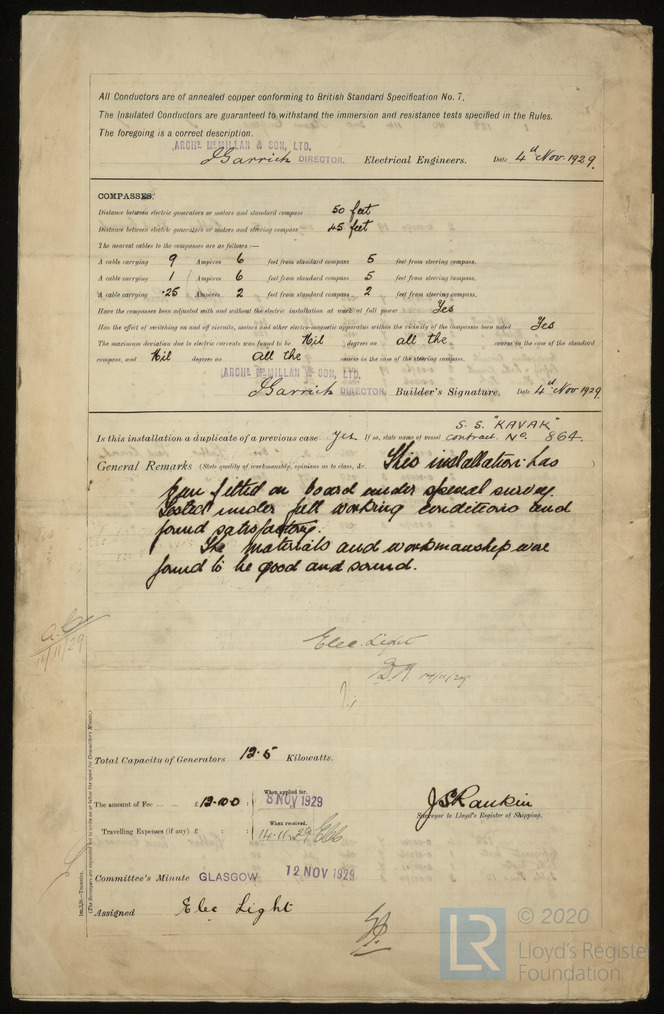 All Conductors are of annealed copper conforming to British Standard Specification No. 7.
The Insulated Conductors are guaranteed to withstand the immersion and resistance tests specified in the Rules.
The foregoing is a correct description.
ARCHD. McMILLAN & SON, LTD.
J Garrick DIRECTOR. Electrical Engineers. Date 4th Nov. 1929.
COMPASSES.
Distance between electric generators or motors and standard compass 50 feet
Distance between electric generators or motors and steering compass 45 feet
The nearest cables to the compasses are as follows:—
A cable carrying 9 Ampères 6 feet from standard compass 5 feet from steering compass.
A cable carrying 1 Ampères 6 feet from standard compass 5 feet from steering compass.
A cable carrying .25 Ampères 2 feet from standard compass 2 feet from steering compass.
Have the compasses been adjusted with and without the electric installation at work at full power Yes
Has the effect of switching on and off circuits, motors and other electro-magnetic apparatus within the vicinity of the compasses been noted Yes
The maximum deviation due to electric currents was found to be Nil degrees on all the course in the case of the standard
compass, and Nil degrees on all the course in the case of the steering compass.
ARCHD. McMILLAN & SON, LTD.
J Garrick DIRECTOR. Builder's Signature. Date 4th Nov 1929
S.S. "KAVAK"
Is this installation a duplicate of a previous case Yes If so, state name of vessel contract No. 864.
General Remarks (State quality of workmanship, opinions as to class, &c. This installation has
been fitted on board under special survey.
Tested under full working conditions and
found satisfactory.
The materials and workmanship were
found to be good and sound.
14/11/29
Elec. Light
14/11/29
Total Capacity of Generators 12.5 Kilowatts.
The amount of Fee ... ... £12.0.0 : When applied for, 8 NOV 1929
Travelling Expenses (if any) £ : : When received, 14.11.29
J S Rankin
Surveyor to Lloyd's Register of Shipping.
Committee's Minute GLASGOW 12 NOV 1929
Assigned Elec Light
Im.2,28.—Transfer.
(The Surveyors are requested not to write on or below the space for Committee's Minute.)
LR © 2020
Lloyd's Register
Foundation